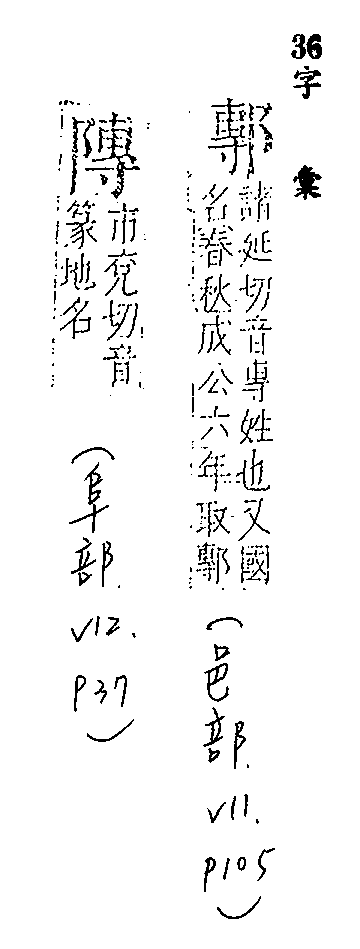 36字 彙
鄟
諸延切音專姓也又國
名春秋成公六年取鄟
(邑部. V11. P105)
𨻱
市兖切音
篆地名
(阜部. V12. P37)